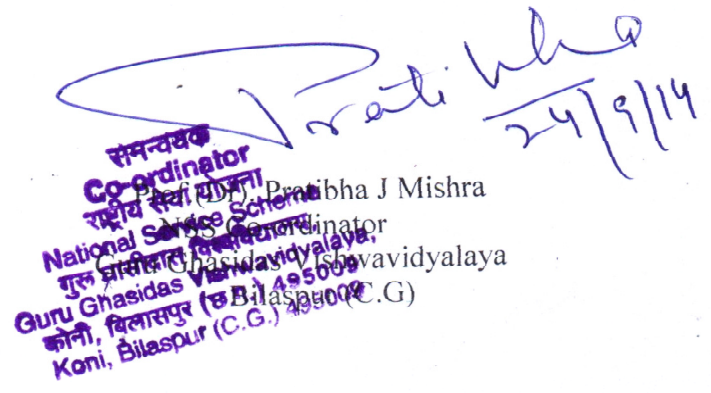 Pratibha
24/9/14
समन्वयक
Co-ordinator
राष्ट्रीय सेवा योजना
National Service Scheme
गुरू घासीदास विश्वविद्यालय,
Guru Ghasidas Vishwavidyalaya,
कोनी, बिलासपुर (छ.ग.) 495009
Koni, Bilaspur (C.G.) 495009
Prof (Dr). Pratibha J Mishra
NSS Co-ordinator
Guru Ghasidas Vishwavidyalaya
Bilaspur (C.G)